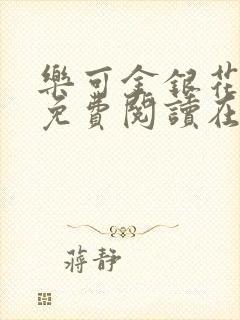 樂可金銀花
免費閱讀在
蔣靜